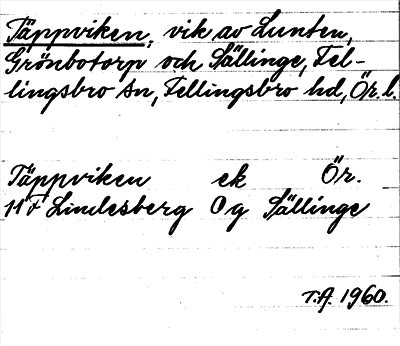 Täppviken, vik av Lunten,
Grönbotorp och Sällinge, Fel-
lingsbro sn, Fellingsbro hd, Ör. l.
Täppviken ek Ör.
11 F Lindesberg O g Sällinge
T.A. 1960.